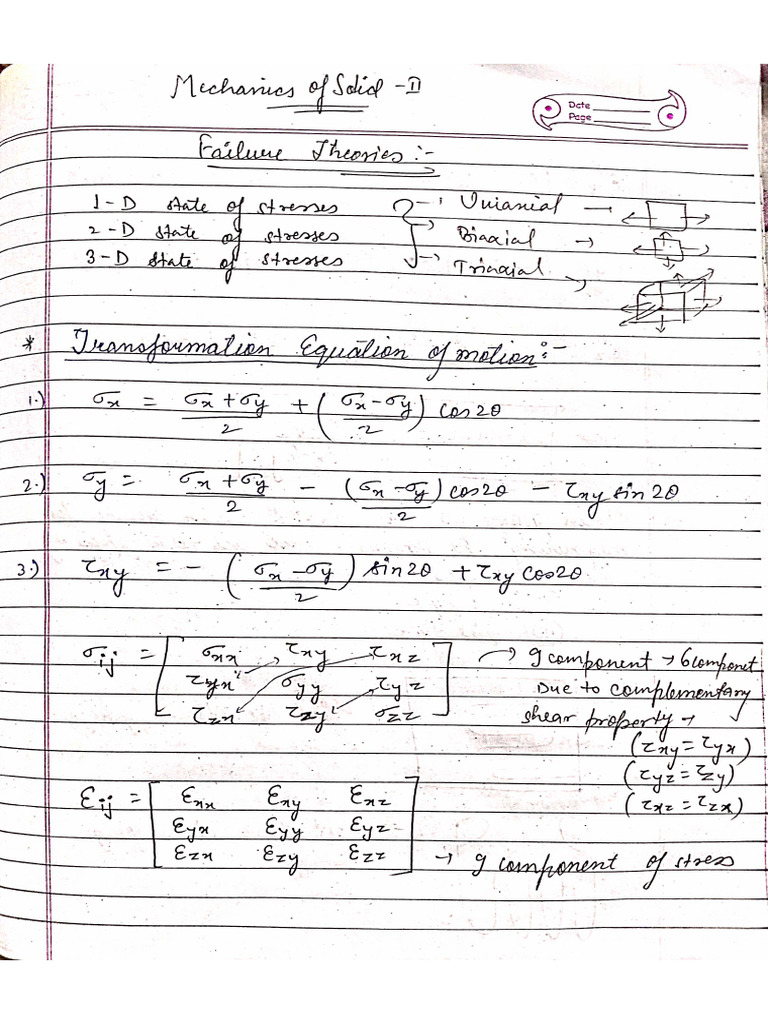 Mechanics of Solid -II
Date
Page
Failure Theories :-
1-D state of stresses → Uniaxial →
2-D state of stresses → Biaxial →
3-D state of stresses → Triaxial →
* Transformation Equation of motion :-
1.) σx = (σx + σy)/2 + ((σx - σy)/2) cos2θ
2.) σy = (σx + σy)/2 - ((σx - σy)/2) cos2θ - τxy sin2θ
3.) τxy = - ((σx - σy)/2) sin2θ + τxy cos2θ
σij = [ σxx τxy τxz → 9 component → 6 componet
τyx σyy τyz Due to complementary
τzx τzy σzz ] shear property →
(τxy = τyx)
(τyz = τzy)
(τxz = τzx)
εij = [ εxx εxy εxz
εyx εyy εyz
εzx εzy εzz ] → 9 component of stress